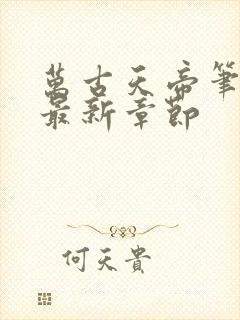 萬古天帝筆
最新章節
何天貴